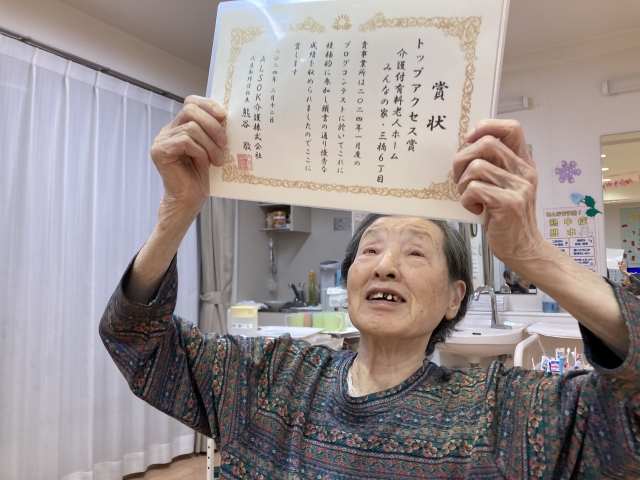 賞状
トップアクセス賞
介護付有料老人ホーム
みんなの家・三橋6丁目
貴事業所は二〇二四年一月度の
ブログコンテストに於いてこれに
積極的に参加し頭書の通り優秀な
成績を収められましたのでここに
賞します
二〇二四年 二月十二日
ALSOK介護株式会社
代表取締役社長 熊谷 敬
熱中症
脱水